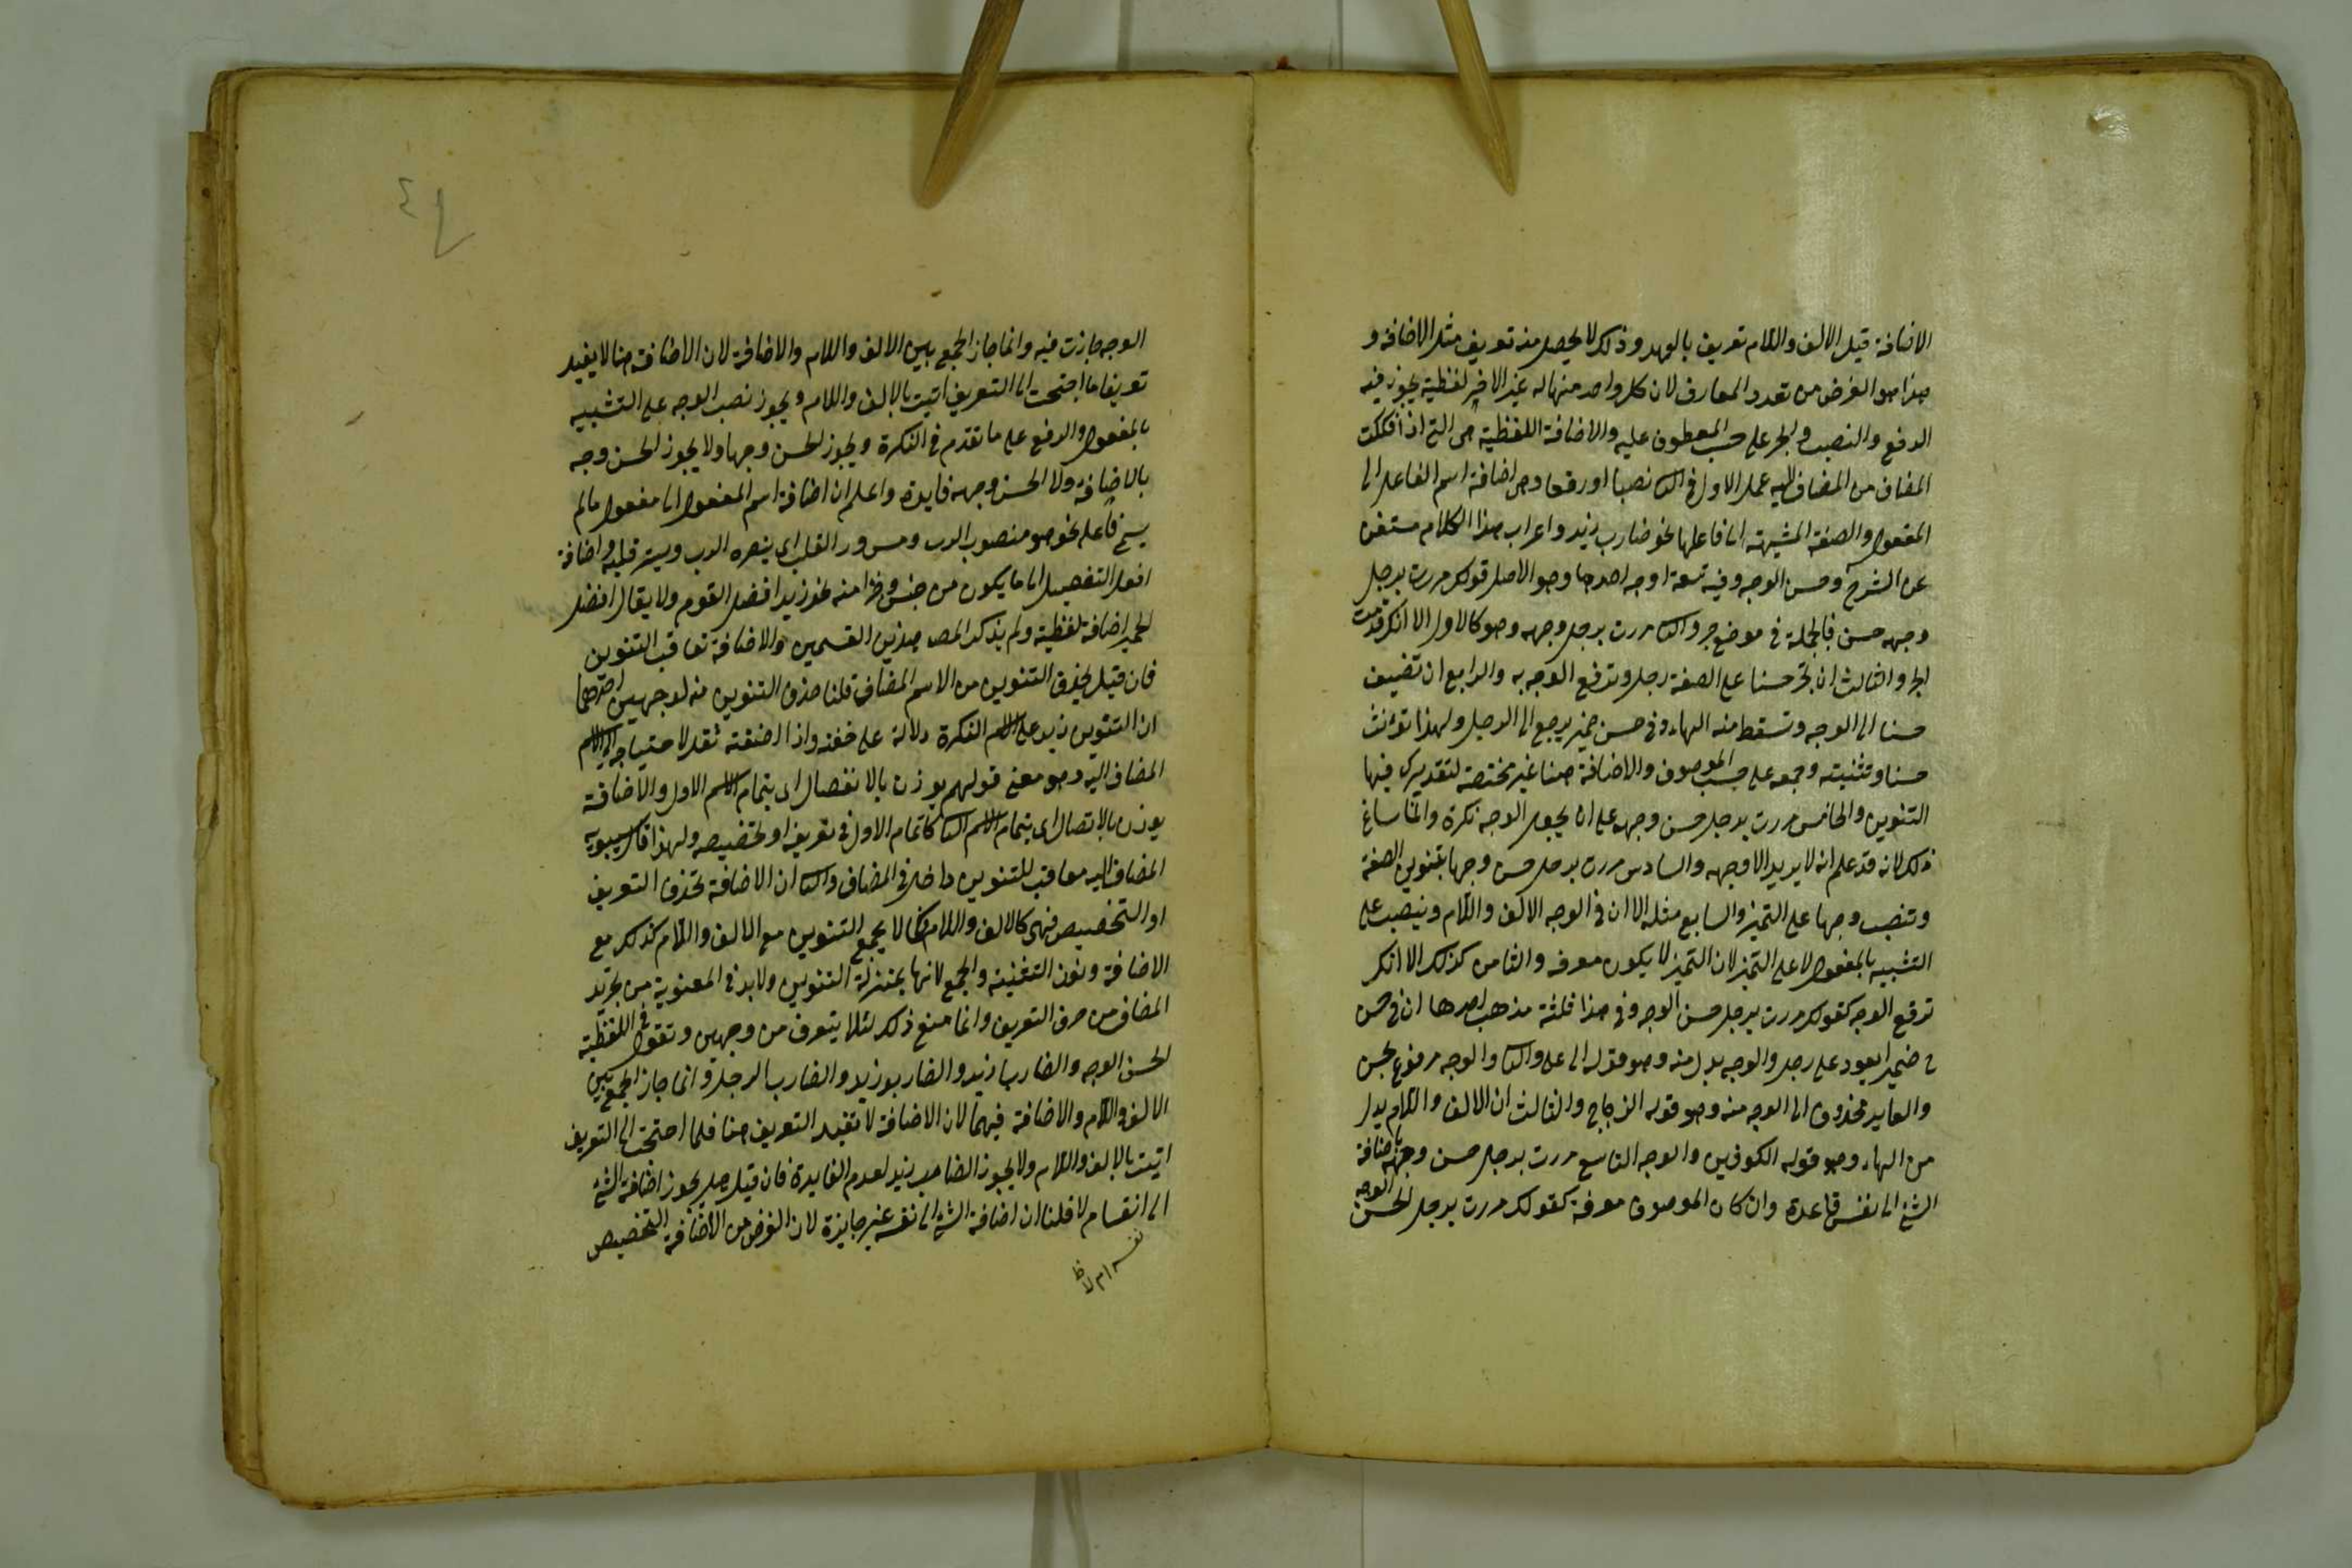 الاضافة قيل الالف واللام تعريف بالعهد وذلك لا يحصل منه تعريف مثل الاضافة و
هذا هو الغرض من تعدد المعارف لان كل واحد منها له غير الاخر لفظية يجوز فيه
الرفع والنصب والجر على حسب المعطوف عليه والاضافة اللفظية هى التى اذا فككت
المضاف من المضاف اليه عمل الاول فى الثا نصبا او رفعا وهى اضافة اسم الفاعل الى
المفعول والصفة المشبهة الى فاعلها نحو ضارب زيد واعراب هذا الكلام مستغن
عن الشرح وحسن الوجه وفيه تسعة اوجه احدها وهو الاصل قولك مررت برجل
وجهه حسن فالجملة فى موضع جر والثا مررت برجل وجهه وهو كالاول الا انك قدمت
الجر والثالث ان تجر حسنا على الصفة رجل وترفع الوجه به والرابع ان تضيف
حسنا الى الوجه وتسقط منه الهاء وفى حسن ضمير يرجع الى الرجل ولهذا تؤنث
حسنا وتثنيته وجمعه على حسب الموصوف والاضافة هنا غير مختصة لتقديرك فيها
التنوين والخامس مررت برجل حسن وجهه على ان يجعل الوجه نكرة وانما ساغ
ذلك لانه قد علم انه لا يريد الا وجهه والسادس مررت برجل حسن وجها بتنوين الصفة
وتنصب وجها على التميز والسابع مثله الا ان فى الوجه الالف واللام وينصب على
التشبيه بالمفعول لا على التميز لان التميز لا يكون معرفه والثامن كذلك الا انك
ترفع الوجه كقولك مررت برجل حسن الوجه وفى هذا ثلثة مذهب احدها ان فى حسن
ضميرا يعود على رجل والوجه بدل منه وهو قول ابى على والثا والوجه مرفوع بحسن
والعايد محذوف اى الوجه منه وهو قول الزجاج والثالث ان الالف واللام بدل
من الهاء وهو قول الكوفين والوجه التاسع مررت برجل حسن وجهه باضافة
الشئ الى نفس قاعدة وان كان الموصوف معرفة كقولك مررت برجل الحسن الوجه
٤
الوجه جازت فيه وانما جاز الجمع بين الالف واللام والاضافة لان الاضافة هنا لا يفيد
تعريفا ما احتجت الى التعريف اتيت بالالف واللام ويجوز نصب الوجه على التشبيه
بالمفعول والرفع على ما تقدم فى النكرة ويجوز الحسن وجها ولا يجوز الحسن وجه
بالاضافة ولا الحسن وجهه فايدة واعلم ان اضافة اسم المفعول الى مفعول ما لم
يسم فاعله نحو هو منصوب الرب ومسرور القلب اى ينصره الرب ويسر قلبه واضافة
افعل التفصيل الى ما يكون من جنس وجزا منه نحو زيد افضل القوم ولا يقال افضل
الحمير اضافة لفظية ولم يذكر المص هذين القسمين والاضافة تعاقب التنوين
فان قيل يحذف التنوين من الاسم المضاف قلنا حذف التنوين منه لوجهين احدهما
ان التنوين زيد على الاسم النكرة دلالة على خفته واذا اضفته ثقل لاحتياجه الى الاسم
المضاف اليه وهو معنى قولهم يوذن بالانفصال اى بتمام الاسم الاول والاضافة
يوذن بالاتصال اى بتمام الاسم الثا كاتمام الاول فى تعريفه او تخصيصه ولهذا قال سيبويه
المضاف اليه معاقب للتنوين داخل فى المضاف والثا ان الاضافة تحذف التعريف
او التخصيص فهى كالالف واللام فكما لا يجمع التنوين مع الالف واللام كذلك مع
الاضافة ونون التثنية والجمع لانها بمنزلة التنوين ولا بد فى المعنوية من تجريد
المضاف من حرف التعريف وانما منع ذلك لئلا يتعرف من وجهين وتقول فى اللفظية
الحسن الوجه والضاربا زيد والضاربو زيد والضارب الرجل وانما جاز الجمع بين
الالف واللام والاضافة فيهما لان الاضافة لا تفيد التعريف هنا فلما احتجت الى التعريف
اتيت بالالف واللام ولا يجوز الضارب زيد لعدم الفايدة فان قيل هل يجوز اضافة الشئ
الى انقسام لا قلنا ان اضافة الشئ الى نفسه غير جايزة لان الغرض من الاضافة التخصيص
نفسه ام لا ظ